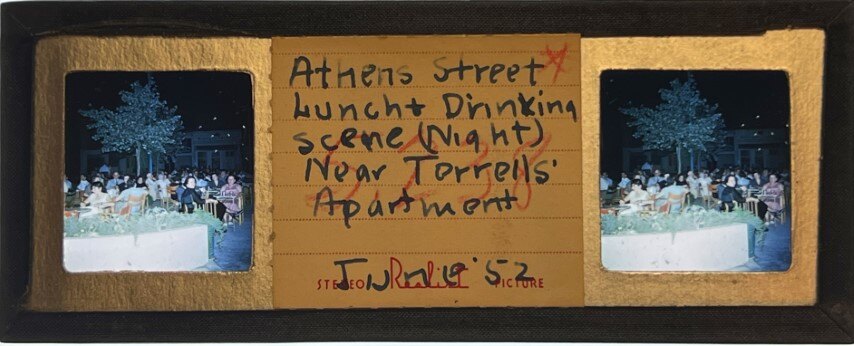 Athens Street
Lunch + Drinking
scene (Night)
Near Terrells'
Apartment
June '52
STEREO Realist PICTURE